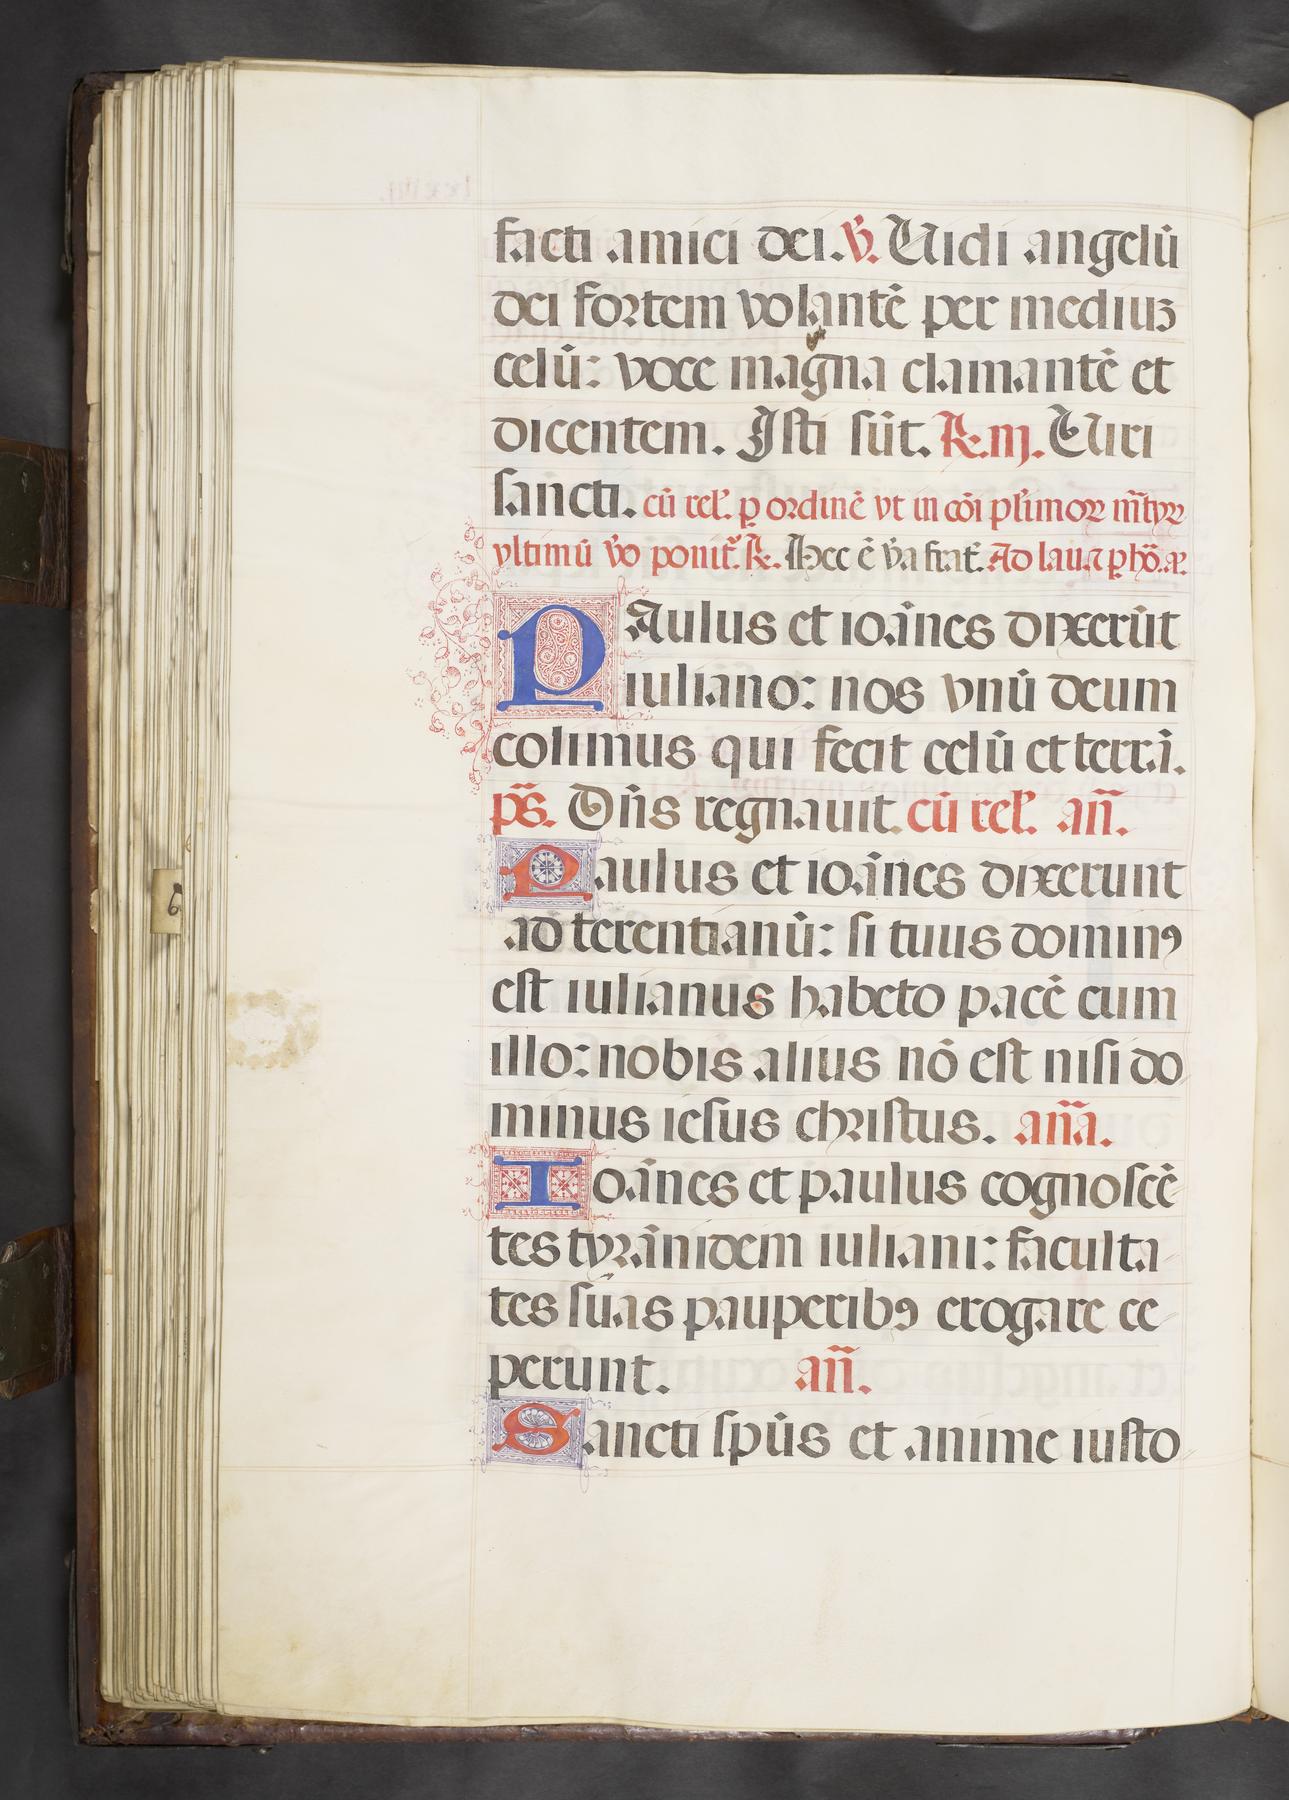 facti amici dei. V̄. Uidi angelū
dei fortem volantē per mediuꝫ
celū: voce magna clamantē et
dicentem. Isti sūt. ℟. iij. Uiri
sancti. cū rel'. ꝑ ordinē vt in cōi pl'imoꝝ m̄tyꝝ
vltimū v̄o ponit᷑. ℟. Hec ē v̄a frat̄. Ad lau. ꝑ ho.
PAulus et ioānes dixerūt
iuliano: nos vnū deum
colimus qui fecit celū et terrā.
p̄s. Dn̄s regnauit. cū rel'. an̄.
Paulus et ioānes dixerunt
ad terentianū: si tuus dominꝰ
est iulianus habeto pacē cum
illo: nobis alius nō est nisi do
minus iesus christus. an̄a.
Ioānes et paulus cognoscē
tes tyrānidem iuliani: faculta
tes suas pauperibꝰ erogare ce
perunt. an̄.
Sancti spūs et anime iusto
6